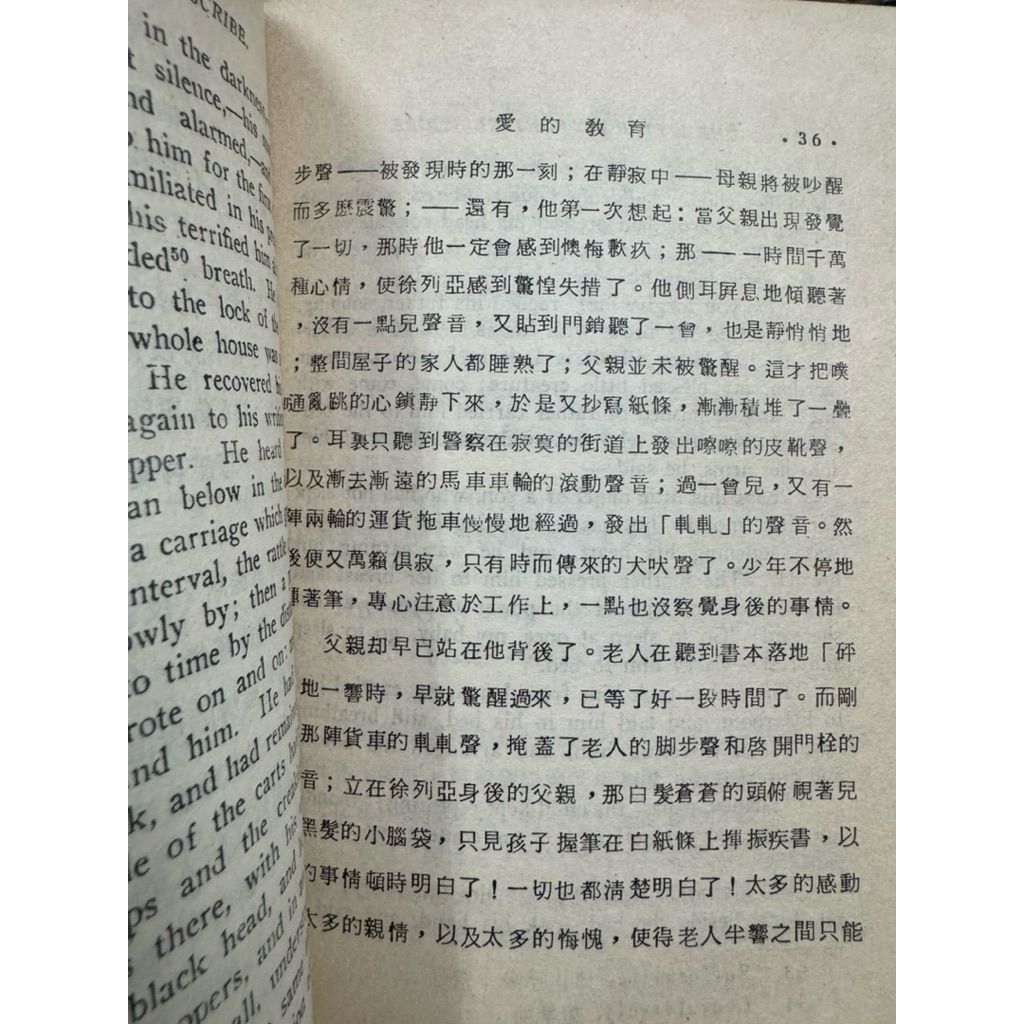 SCRIBE.
in the darkness
silence,—his
alarmed,—and
him for the first
miliated in his
his terrified him
ded⁵⁰ breath. He
to the lock of the
whole house was
He recovered
again to his
pper. He heard
an below in the
a carriage which
nterval, the rattle
owly by; then a
to time by the
rote on and on:
nd him. He had
k, and had
e of the carts
ps and the
there, with his
black head, and
and in
same
愛的教育
·36·
步聲——被發現時的那一刻；在靜寂中——母親將被吵醒
而多麽震驚；——還有，他第一次想起：當父親出現發覺
了一切，那時他一定會感到懊悔歉疚；那——一時間千萬
種心情，使徐列亞感到驚惶失措了。他側耳屏息地傾聽著
，沒有一點兒聲音，又貼到門銷聽了一會，也是靜悄悄地
；整間屋子的家人都睡熟了；父親並未被驚醒。這才把噗
通亂跳的心鎮靜下來，於是又抄寫紙條，漸漸積堆了一疊
了。耳裏只聽到警察在寂寞的街道上發出嚓嚓的皮靴聲，
以及漸去漸遠的馬車車輪的滾動聲音；過一會兒，又有一
陣兩輪的運貨拖車慢慢地經過，發出「軋軋」的聲音。然
後便又萬籟俱寂，只有時而傳來的犬吠聲了。少年不停地
揮著筆，專心注意於工作上，一點也沒察覺身後的事情。
父親却早已站在他背後了。老人在聽到書本落地「砰
地一響時，早就驚醒過來，已等了好一段時間了。而剛
那陣貨車的軋軋聲，掩蓋了老人的脚步聲和啓開門栓的
音；立在徐列亞身後的父親，那白髮蒼蒼的頭俯視著兒
黑髮的小腦袋，只見孩子握筆在白紙條上揮振疾書，以
的事情頓時明白了！一切也都清楚明白了！太多的感動
太多的親情，以及太多的悔愧，使得老人半響之間只能